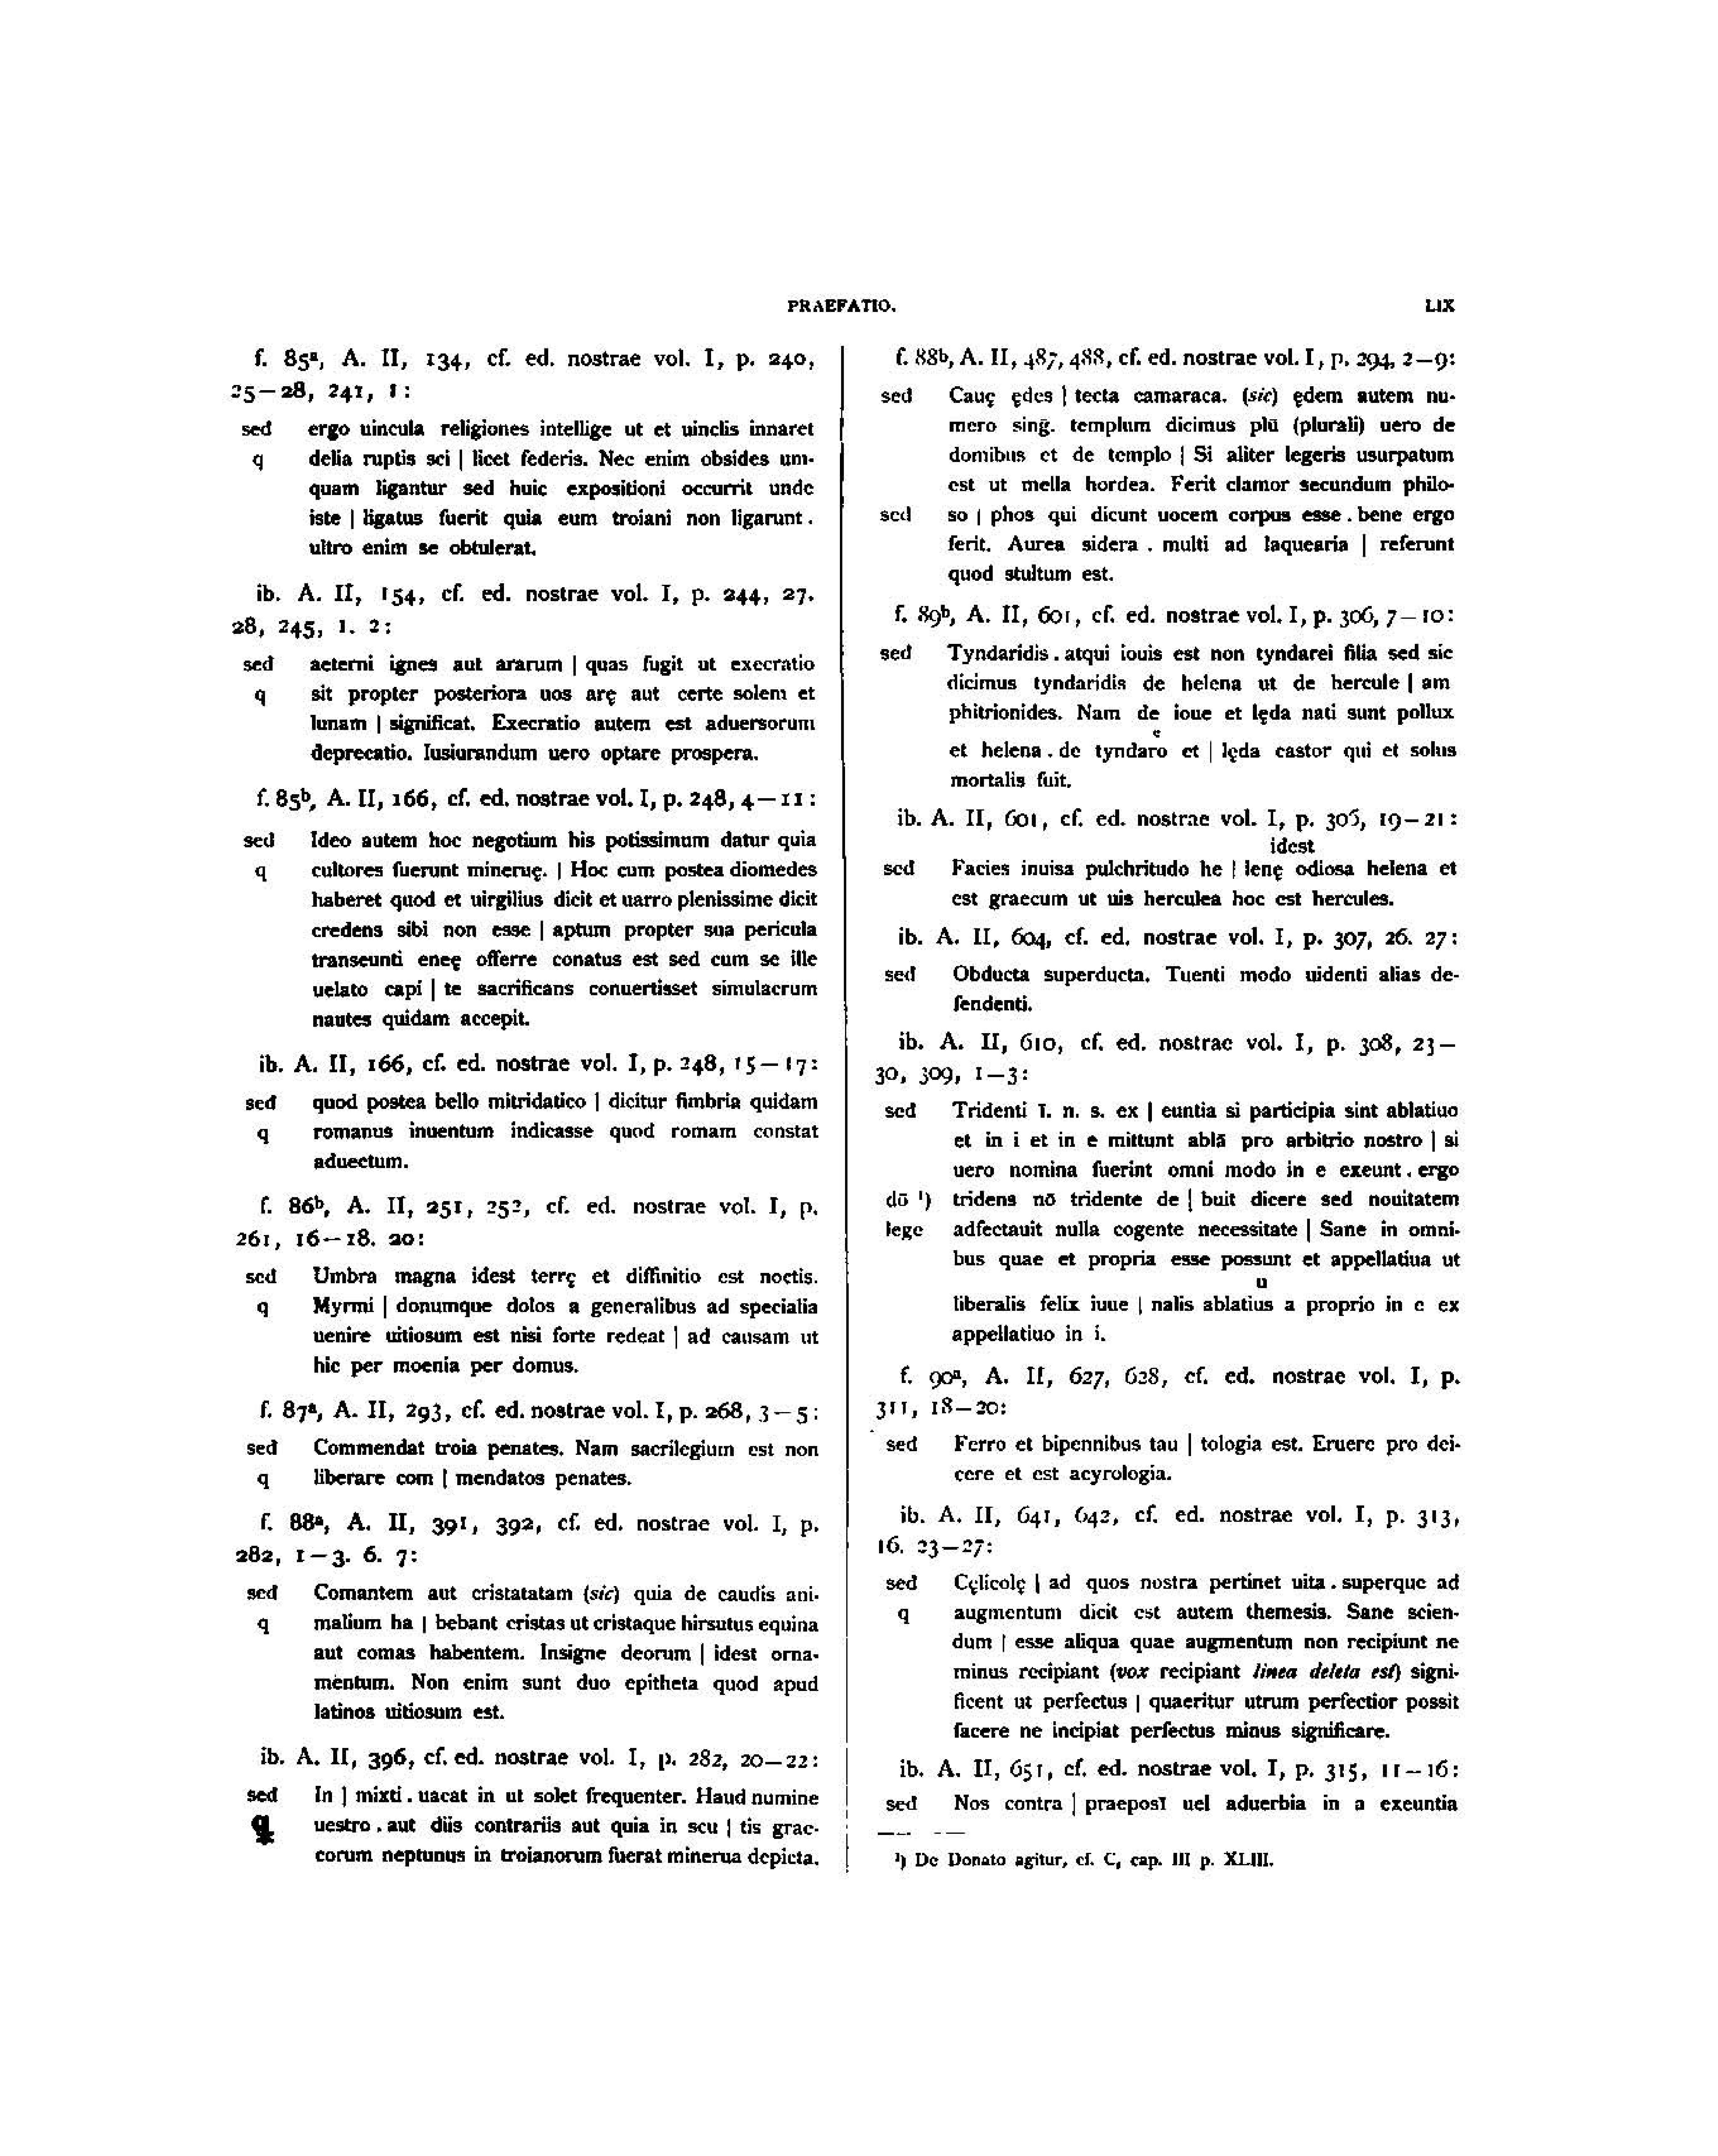 PRAEFATIO. LIX
f. 85ᵃ, A. II, 134, cf. ed. nostrae vol. I, p. 240,
25—28, 241, 1:
sed ergo uincula religiones intellige ut et uinclis innaret
q delia ruptis sci | licet federis. Nec enim obsides um-
quam ligantur sed huic expositioni occurrit unde
iste | ligatus fuerit quia eum troiani non ligarunt.
ultro enim se obtulerat.
ib. A. II, 154, cf. ed. nostrae vol. I, p. 244, 27.
28, 245, 1. 2:
sed aeterni ignes aut ararum | quas fugit ut execratio
q sit propter posteriora uos arę aut certe solem et
lunam | significat. Execratio autem est aduersorum
deprecatio. Iusiurandum uero optare prospera.
f. 85ᵇ, A. II, 166, cf. ed. nostrae vol. I, p. 248, 4—11:
sed Ideo autem hoc negotium his potissimum datur quia
q cultores fuerunt mineruę. | Hoc cum postea diomedes
haberet quod et uirgilius dicit et uarro plenissime dicit
credens sibi non esse | aptum propter sua pericula
transeunti eneę offerre conatus est sed cum se ille
uelato capi | te sacrificans conuertisset simulacrum
nautes quidam accepit.
ib. A. II, 166, cf. ed. nostrae vol. I, p. 248, 15—17:
sed quod postea bello mitridatico | dicitur fimbria quidam
q romanus inuentum indicasse quod romam constat
aduectum.
f. 86ᵇ, A. II, 251, 252, cf. ed. nostrae vol. I, p.
261, 16—18. 20:
sed Umbra magna idest terrę et diffinitio est noctis.
q Myrmi | donumque dolos a generalibus ad specialia
uenire uitiosum est nisi forte redeat | ad causam ut
hic per moenia per domus.
f. 87ᵃ, A. II, 293, cf. ed. nostrae vol. I, p. 268, 3—5:
sed Commendat troia penates. Nam sacrilegium est non
q liberare com | mendatos penates.
f. 88ᵃ, A. II, 391, 392, cf. ed. nostrae vol. I, p.
282, 1—3. 6. 7:
sed Comantem aut cristatatam (sic) quia de caudis ani-
q malium ha | bebant cristas ut cristaque hirsutus equina
aut comas habentem. Insigne deorum | idest orna-
mentum. Non enim sunt duo epitheta quod apud
latinos uitiosum est.
ib. A. II, 396, cf. ed. nostrae vol. I, p. 282, 20—22:
sed In | mixti. uacat in ut solet frequenter. Haud numine
q uestro. aut diis contrariis aut quia in scu | tis grae-
corum neptunus in troianorum fuerat minerua depicta.
f. 88ᵇ, A. II, 487, 488, cf. ed. nostrae vol. I, p. 294, 2—9:
sed Cauę ędes | tecta camaraca. (sic) ędem autem nu-
mero sing̅. templum dicimus plū (plurali) uero de
domibus et de templo | Si aliter legeris usurpatum
est ut mella hordea. Ferit clamor secundum philo-
sed so | phos qui dicunt uocem corpus esse. bene ergo
ferit. Aurea sidera . multi ad laquearia | referunt
quod stultum est.
f. 89ᵇ, A. II, 601, cf. ed. nostrae vol. I, p. 306, 7—10:
sed Tyndaridis. atqui iouis est non tyndarei filia sed sic
dicimus tyndaridis de helena ut de hercule | am
phitrionides. Nam de ioue et lęda nati sunt pollux
e
et helena. de tyndaro et | lęda castor qui et solus
mortalis fuit.
ib. A. II, 601, cf. ed. nostrae vol. I, p. 306, 19—21:
idest
sed Facies inuisa pulchritudo he | lenę odiosa helena et
est graecum ut uis herculea hoc est hercules.
ib. A. II, 604, cf. ed. nostrae vol. I, p. 307, 26. 27:
sed Obducta superducta. Tuenti modo uidenti alias de-
fendenti.
ib. A. II, 610, cf. ed. nostrae vol. I, p. 308, 23—
30, 309, 1—3:
sed Tridenti ī. n. s. ex | euntia si participia sint ablatiuo
et in i et in e mittunt ablā pro arbitrio nostro | si
uero nomina fuerint omni modo in e exeunt. ergo
dō ¹) tridens nō tridente de | buit dicere sed nouitatem
lege adfectauit nulla cogente necessitate | Sane in omni-
bus quae et propria esse possunt et appellatiua ut
u
liberalis felix iuue | nalis ablatius a proprio in e ex
appellatiuo in i.
f. 90ᵃ, A. II, 627, 628, cf. ed. nostrae vol. I, p.
311, 18—20:
sed Ferro et bipennibus tau | tologia est. Eruere pro dei-
cere et est acyrologia.
ib. A. II, 641, 642, cf. ed. nostrae vol. I, p. 313,
16. 23—27:
sed Cęlicolę | ad quos nostra pertinet uita. superque ad
q augmentum dicit est autem themesis. Sane scien-
dum | esse aliqua quae augmentum non recipiunt ne
minus recipiant (vox recipiant linea deleta est) signi-
ficent ut perfectus | quaeritur utrum perfectior possit
facere ne incipiat perfectus minus significare.
ib. A. II, 651, cf. ed. nostrae vol. I, p. 315, 11—16:
sed Nos contra | praeposī uel aduerbia in a exeuntia
¹) De Donato agitur, cf. C, cap. III p. XLIII.